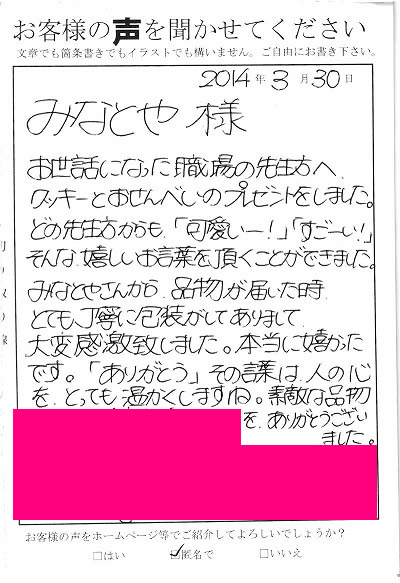 お客様の声を聞かせてください
文章でも箇条書きでもイラストでも構いません。ご自由にお書き下さい。
2014年3月30日
みなとや 様
お世話になった職場の先生方へ
クッキーとおせんべいのプレゼントをしました。
どの先生方からも、「可愛いー!」「すごーい!」
そんな嬉しいお言葉を頂くことができました。
みなとやさんから、品物が届いた時
とても丁寧に包装がしてありまして
大変感激致しました。本当に嬉かった
です。「ありがとう」その言葉は、人の心
を、とっても温かくしますね。素敵な品物
を、ありがとうござい
ました。
お客様の声をホームページ等でご紹介してよろしいでしょうか？
□はい ☑匿名で □いいえ